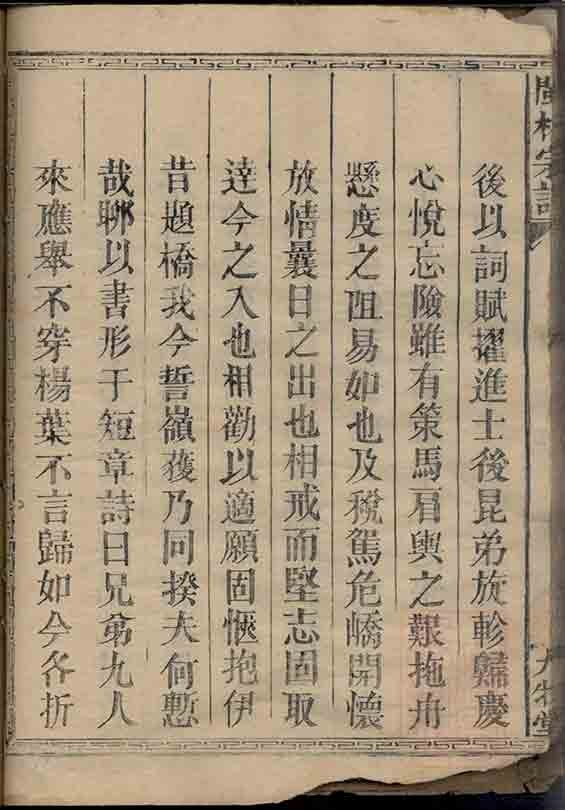 閩林宗譜
後以詞賦擢進士後昆弟旋軫歸慶
心悅忘險雖有策馬肩輿之艱拖舟
懸度之阻易如也及稅駕危嶠開懷
放情曩日之出也相戒而堅志固取
達今之入也相勸以適願固愜抱伊
昔題橋我今誓嶺蒦乃同揆夫何慙
哉聊以書形于短章詩曰兄弟九人
來應舉不穿楊葉不言歸如今各折